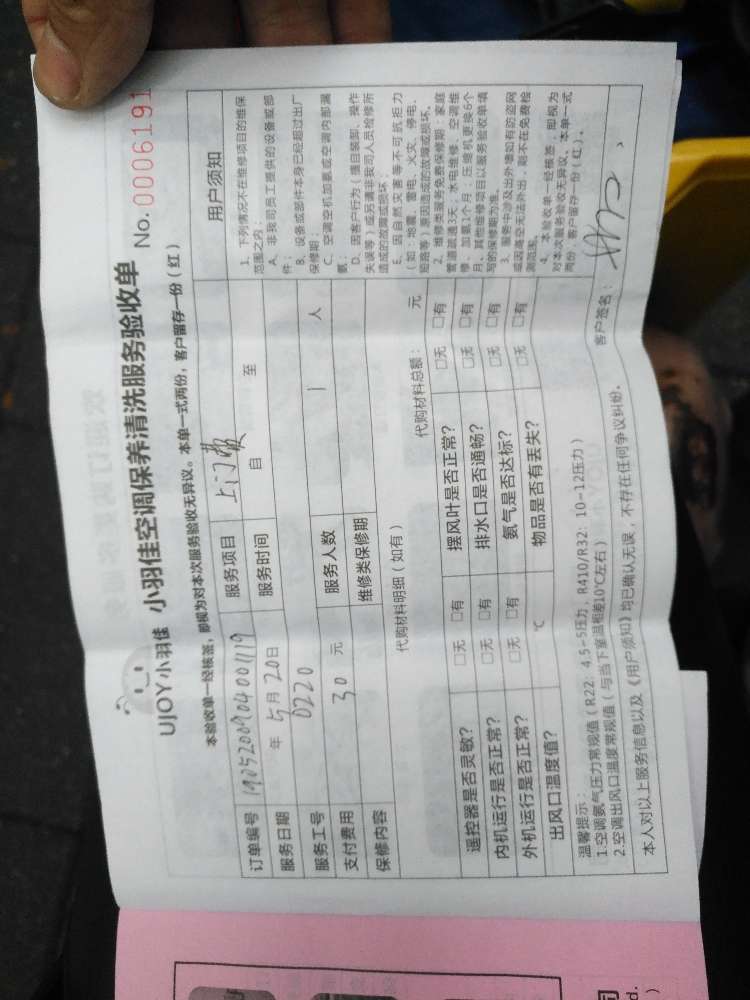 UJOY小羽佳 小羽佳空调保养清洗服务验收单 No. 0006191
本验收单一经核签，即视为对本次服务验收无异议。本单一式两份，客户留存一份（红）
订单编号 19052009040011119 服务项目 上门费
服务日期 年 5月20日 服务时间 自 至
服务工号 0220 服务人数 1 人
支付费用 30 元 维修类保修期
保修内容
代购材料明细（如有） 代购材料总额： 元
遥控器是否灵敏? □无 □有 摆风叶是否正常? □无 □有
内机运行是否正常? □无 □有 排水口是否通畅? □无 □有
外机运行是否正常? □无 □有 氨气是否达标? □无 □有
出风口温度值? ℃ 物品是否有丢失? □无 □有
温馨提示：
1.空调氨气压力常规值（R22：4.5-5压力，R410/R32：10-12压力）
2.空调出风口温度常规值（与当下室温相差10℃左右）
本人对以上服务信息以及《用户须知》均已确认无误，不存在任何争议纠纷。 客户签名：
用户须知
1、下列情况不在维修项目的维保
范围之内：
A、非我司员工提供的设备或部
件；
B、设备或部件本身已经超过出厂
保修期；
C、空调空机加氨或空调内部漏
氨；
D、因客户行为（擅自装卸、操作
失误等）或另请非我司人员检修所
造成的故障或损坏；
E、因自然灾害等不可抗拒力
（如：地震、雷电、火灾、停电、
短路等）原因造成的故障或损坏。
2、维修类服务免费保修期：家庭
管道疏通3天；水电维修、空调维
修、加氨1个月；压缩机更换6个
月，其他维修项目以服务验收单填
写的保修期为准。
3、服务中涉及出外墙如有防盗网
或因高空无法外出，则不在免费检
测范围。
4、本验收单一经核签，即视为
对本次服务验收无异议。本单一式
两份，客户留存一份（红）。